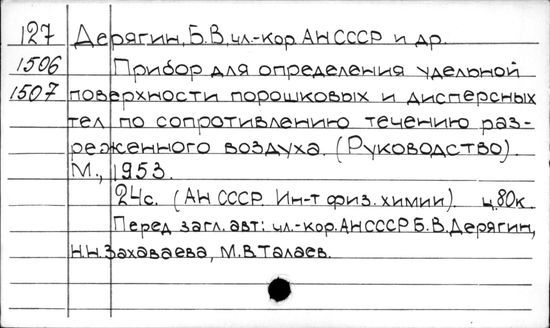 127 Дерягин, Б.В, чл.-кор АН СССР и др.
1506 Прибор для определения удельной
1507 поверхности порошковых и дисперсных
тел по сопротивлению течению раз-
реженного воздуха. (Руководство).
М., 1953.
24с. (АН СССР. Ин-т физ. химии). ц.80к.
Перед загл. авт: чл.-кор. АН СССР Б.В. Дерягин,
Н.Н. Захаваева, М.В Талаев.